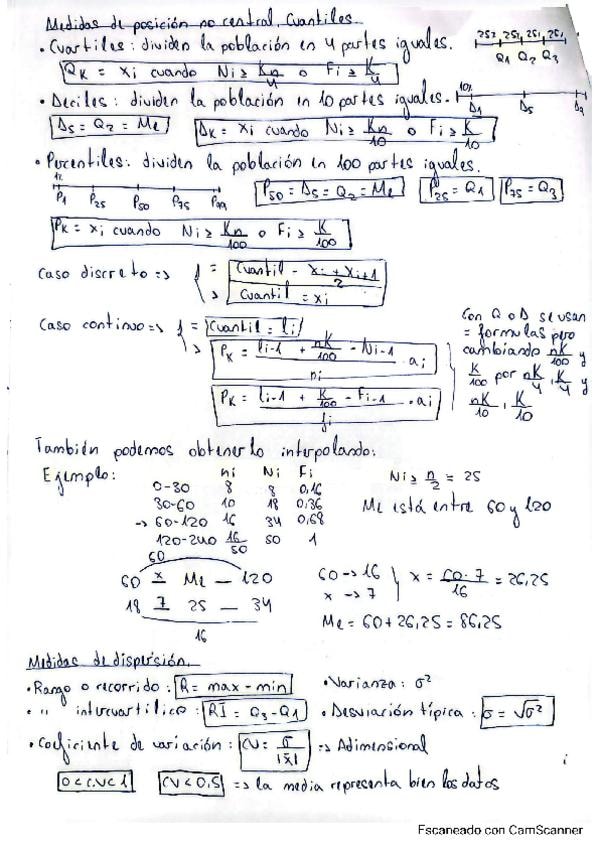 Medidas de posición no central. Cuantiles
• Cuartiles: dividen la población en 4 partes iguales. 25% 25% 25% 25%
Q1 Q2 Q3
QK = xi cuando Ni ≥ Kn/4 o Fi ≥ K/4
• Deciles: dividen la población en 10 partes iguales. 10%
D1 D5 D9
D5 = Q2 = Me DK = xi cuando Ni ≥ Kn/10 o Fi ≥ K/10
• Percentiles: dividen la población en 100 partes iguales.
1%
P1 P25 P50 P75 P99
P50 = D5 = Q2 = Me P25 = Q1 P75 = Q3
PK = xi cuando Ni ≥ Kn/100 o Fi ≥ K/100
Caso discreto => 1 = Cuantil = xi + xi+1 / 2
> Cuantil = xi
Caso continuo => 1 = Cuantil = li
> PK = li-1 + nK/100 - Ni-1 / ni · ai
PK = li-1 + K/100 - Fi-1 / fi · ai
Con Q o D se usan
= formulas pero
cambiando nK/100 y
K/100 por nK/4, K/4 y
nK/10, K/10
También podemos obtenerlo interpolando:
Ejemplo: ni Ni Fi
0-30 8 8 0,16
30-60 10 18 0,36
-> 60-120 16 34 0,68
120-240 16 50 1
50
Ni ≥ n/2 = 25
Me está entre 60 y 120
60
60 x Me — 120
18 7 25 — 34
16
60 -> 16
x -> 7
x = 60·7/16 = 26,25
Me = 60 + 26,25 = 86,25
Medidas de dispersión.
• Rango o recorrido: R = max - min • Varianza: σ²
• " intercuartílico: RI = Q3 - Q1 • Desviación típica: σ = √σ²
• Coeficiente de variación: CV = σ/|x̄| => Adimensional
0 < CV < 1 CV < 0,5 => la media representa bien los datos
Escaneado con CamScanner